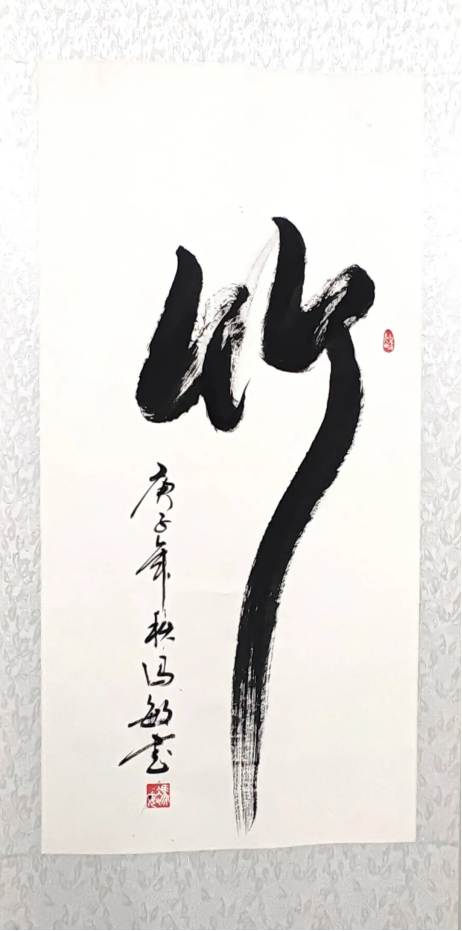 竹
庚子年秋冯敏书